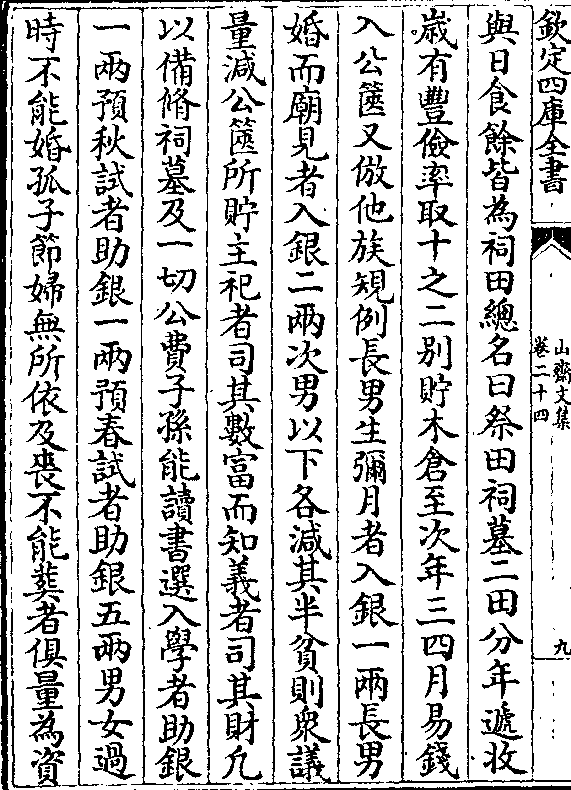 欽定四庫全書
山齋文集
卷二十四
九
與日食餘皆為祠田總名曰祭田祠墓二田分年遞收
歲有豐儉率取十之二別貯木倉至次年三四月易錢
入公篋又倣他族規例長男生彌月者入銀一兩長男
婚而廟見者入銀二兩次男以下各減其半貧則衆議
量減公篋所貯主祀者司其數富而知義者司其財凡
以備脩祠墓及一切公費子孫能讀書選入學者助銀
一兩預秋試者助銀一兩預春試者助銀五兩男女過
時不能婚孤子節婦無所依及喪不能葬者俱量為資